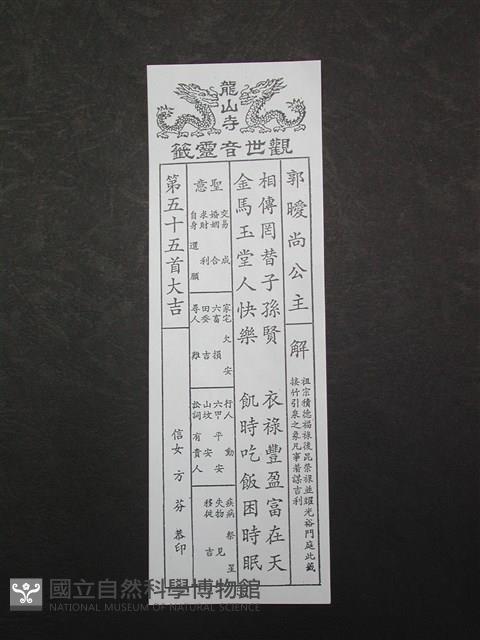 龍山寺
觀世音靈籤
郭曖尚公主
解
祖宗積德福蔭後昆榮祿並耀光裕門庭此籤
接竹引泉之象凡事著謀吉利
相傳罔替子孫賢 衣祿豐盈富在天
金馬玉堂人快樂 飢時吃飯困時眠
聖意
交易 成
婚姻 合
求財 利
自身 還願
家宅 欠安
六畜 損
田蚕 吉
尋人 難
行人 動
六甲 平安
山坟 安
訟詞 有貴人
疾病 祭星
失物 見
移徙 吉
第五十五首大吉
信女 方 芬 恭印
國立自然科學博物館
NATIONAL MUSEUM OF NATURAL SCIENCE